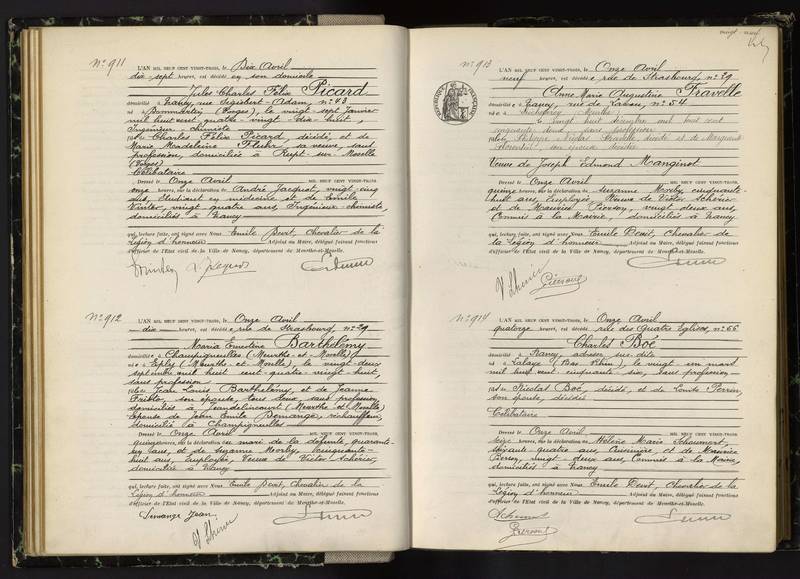 N° 911
L'AN MIL NEUF CENT VINGT-TROIS, le Dix Avril
dix-sept heures, est décédé en son domicile
Jules Charles Félix Picard
domicilié à Nancy, rue Sigisbert-Adam, n° 43
né à Dommartin (Vosges), le vingt-sept Janvier
mil huit cent quatre-vingt-dix-huit,
Ingénieur chimiste
fils de Charles Félix Picard, décédé, et de
Marie Madeleine Fluhr, sa veuve, sans
profession, domiciliée à Rupt-sur-Moselle
(Vosges)
Célibataire
Dressé le Onze Avril MIL NEUF CENT VINGT-TROIS,
onze heures, sur la déclaration de André Jacquot, vingt-cinq
ans, Etudiant en médecine et de Emile
vingt quatre ans, Ingénieur-chimiste,
domiciliés à Nancy
qui, lecture faite, ont signé avec Nous Emile Devit, Chevalier de la
Légion d'honneur Adjoint au Maire, délégué faisant fonctions
d'officier de l'Etat civil de la Ville de Nancy, département de Meurthe-et-Moselle.
N° 912
L'AN MIL NEUF CENT VINGT-TROIS, le Onze Avril
dix heures, est décédée rue de Strasbourg, n° 29
Maria Ernestine Barthélémy
domiciliée à Champigneulles (Meurthe-et-Moselle)
née à Eply (Meurthe-et-Moselle), le vingt-deux
septembre mil huit cent quatre-vingt-huit,
sans profession
fille de Jean Louis Barthélémy et de Jeanne
son épouse, tous deux, sans profession,
domiciliés à Jeandelincourt (Meurthe-et-Moselle)
Epouse de Jean Emile Demange, réchauffeur,
domicilié à Champigneulles
Dressé le Onze Avril MIL NEUF CENT VINGT-TROIS,
quinze heures, sur la déclaration du mari de la défunte, quarante-
ans, et de Suzanne Morby, cinquante-
huit ans, employée, Veuve de Victor Schérier,
domiciliée à Nancy
qui, lecture faite, ont signé avec Nous Emile Devit, Chevalier de la
Légion d'honneur Adjoint au Maire, délégué faisant fonctions
d'officier de l'Etat civil de la Ville de Nancy, département de Meurthe-et-Moselle.
Demange Jean
N° 913
L'AN MIL NEUF CENT VINGT-TROIS, le Onze Avril
neuf heures, est décédée rue de Strasbourg, n° 29
Anne Marie Augustine Fravolle
domiciliée à Nancy, rue de n° 54
née à (Meurthe)
le vingt huit décembre mil huit cent
cinquante deux, sans profession
fille de Fravolle décédé et de Marguerite
son épouse décédée
Veuve de Joseph Edmond Monginot
Dressé le Onze Avril MIL NEUF CENT VINGT-TROIS,
quinze heures, sur la déclaration de Suzanne Morby, cinquante-
huit ans, employée Veuve de Victor Schérier
et de Maurice Pierson, vingt-deux ans,
Commis à la Mairie, domiciliés à Nancy
qui, lecture faite, ont signé avec Nous Emile Devit, Chevalier de
la Légion d'honneur Adjoint au Maire, délégué faisant fonctions
d'officier de l'Etat civil de la Ville de Nancy, département de Meurthe-et-Moselle.
N° 914
L'AN MIL NEUF CENT VINGT-TROIS, le Onze Avril
quatorze heures, est décédé rue des Quatre Eglises, n° 66
Charles Boé
domicilié à Nancy, adresse sus-dite
né à Lalaye (Bas-Rhin), le vingt-un mars
mil huit cent cinquante-dix, sans profession
fils de Nicolas Boé, décédé, et de Perrin,
son épouse, décédée
Célibataire
Dressé le Onze Avril MIL NEUF CENT VINGT-TROIS,
seize heures, sur la déclaration de Hélène Marie Schaumont,
soixante quatre ans, Cuisinière et de Maurice
Pierson, vingt-deux ans, Commis à la Mairie,
domiciliés à Nancy
qui, lecture faite, ont signé avec Nous Emile Devit, Chevalier de la
Légion d'honneur Adjoint au Maire, délégué faisant fonctions
d'officier de l'Etat civil de la Ville de Nancy, département de Meurthe-et-Moselle.